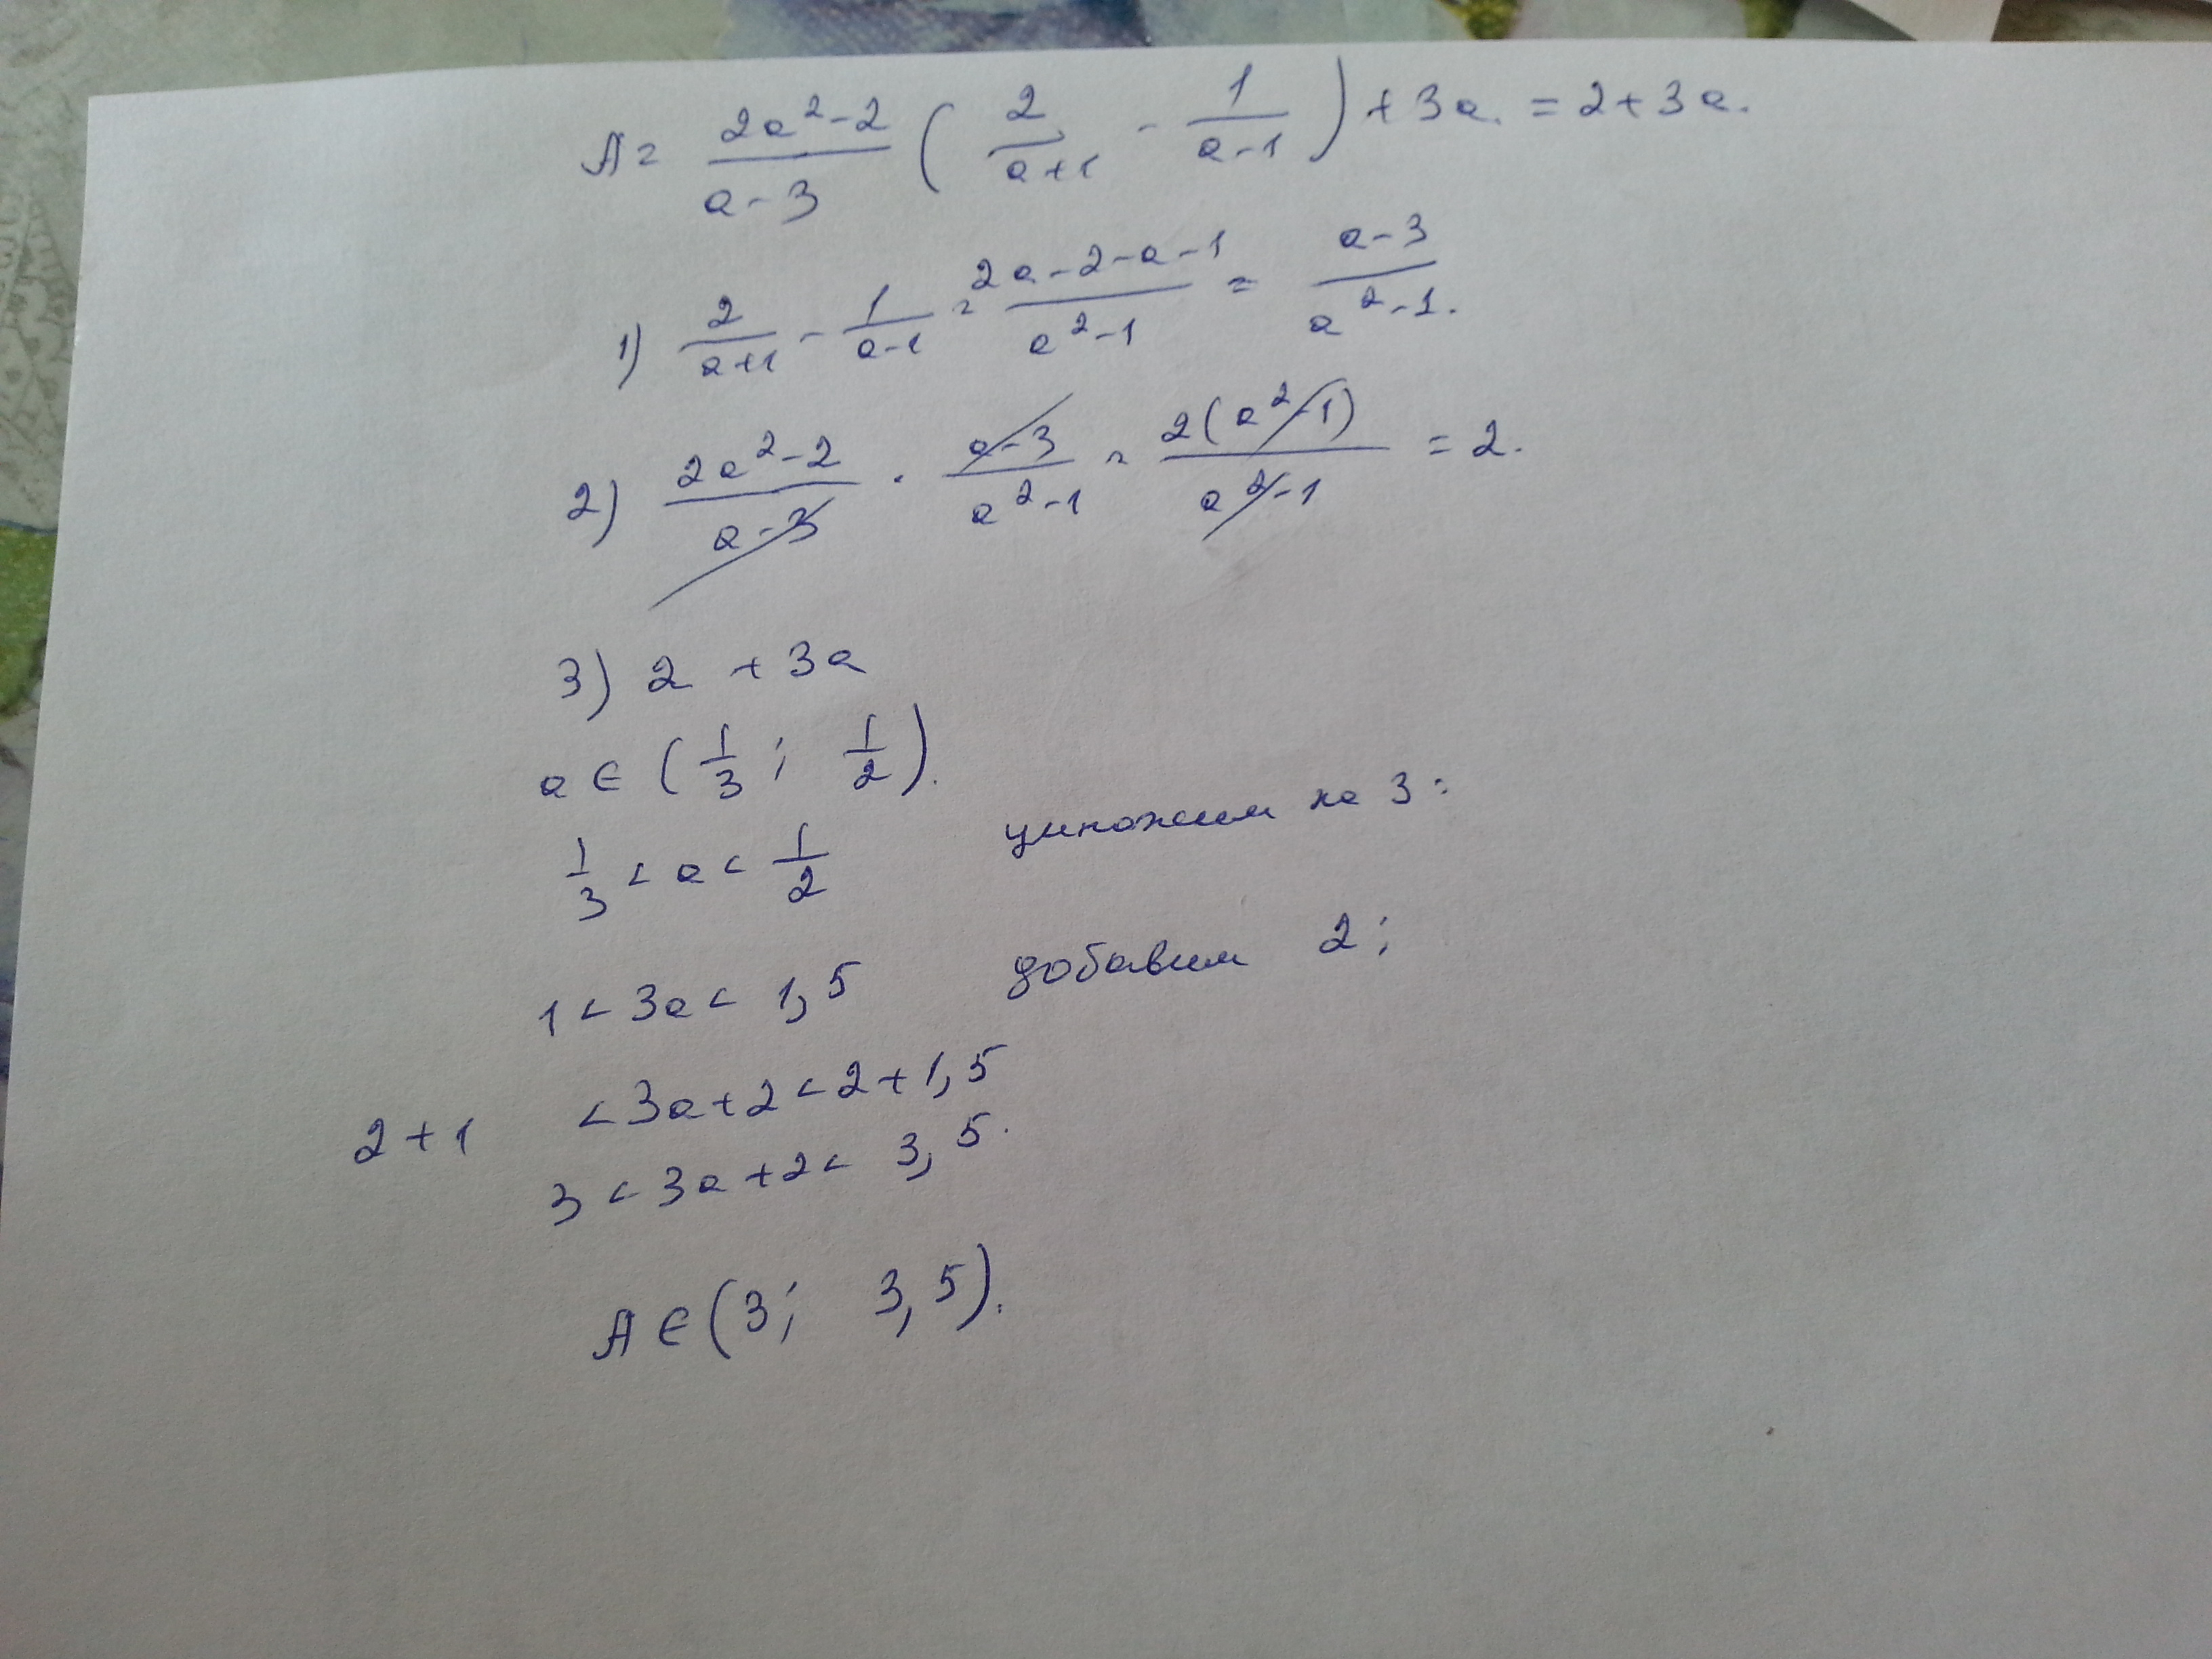 A = (2a²-2)/(a-3) (2/(a+1) - 1/(a-1)) + 3a. = 2+3a.
1) 2/(a+1) - 1/(a-1) = (2a-2-a-1)/(a²-1) = (a-3)/(a²-1).
2) (2a²-2)/(a-3) · (a-3)/(a²-1) = 2(a²-1)/(a²-1) = 2.
3) 2 + 3a
a ∈ (1/3; 1/2).
1/3 < a < 1/2 умножим на 3:
1 < 3a < 1,5 добавим 2;
2+1 < 3a+2 < 2+1,5
3 < 3a+2 < 3,5.
A ∈ (3; 3,5).